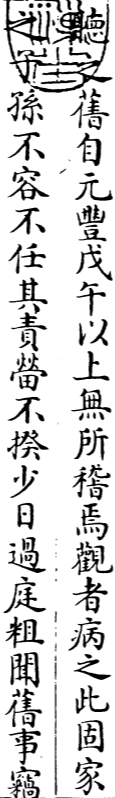 聽之舊自元豐戊午以上無所稽焉觀者病之此固家
之子孫不容不任其責㽦不揆少日過庭粗聞舊事竊